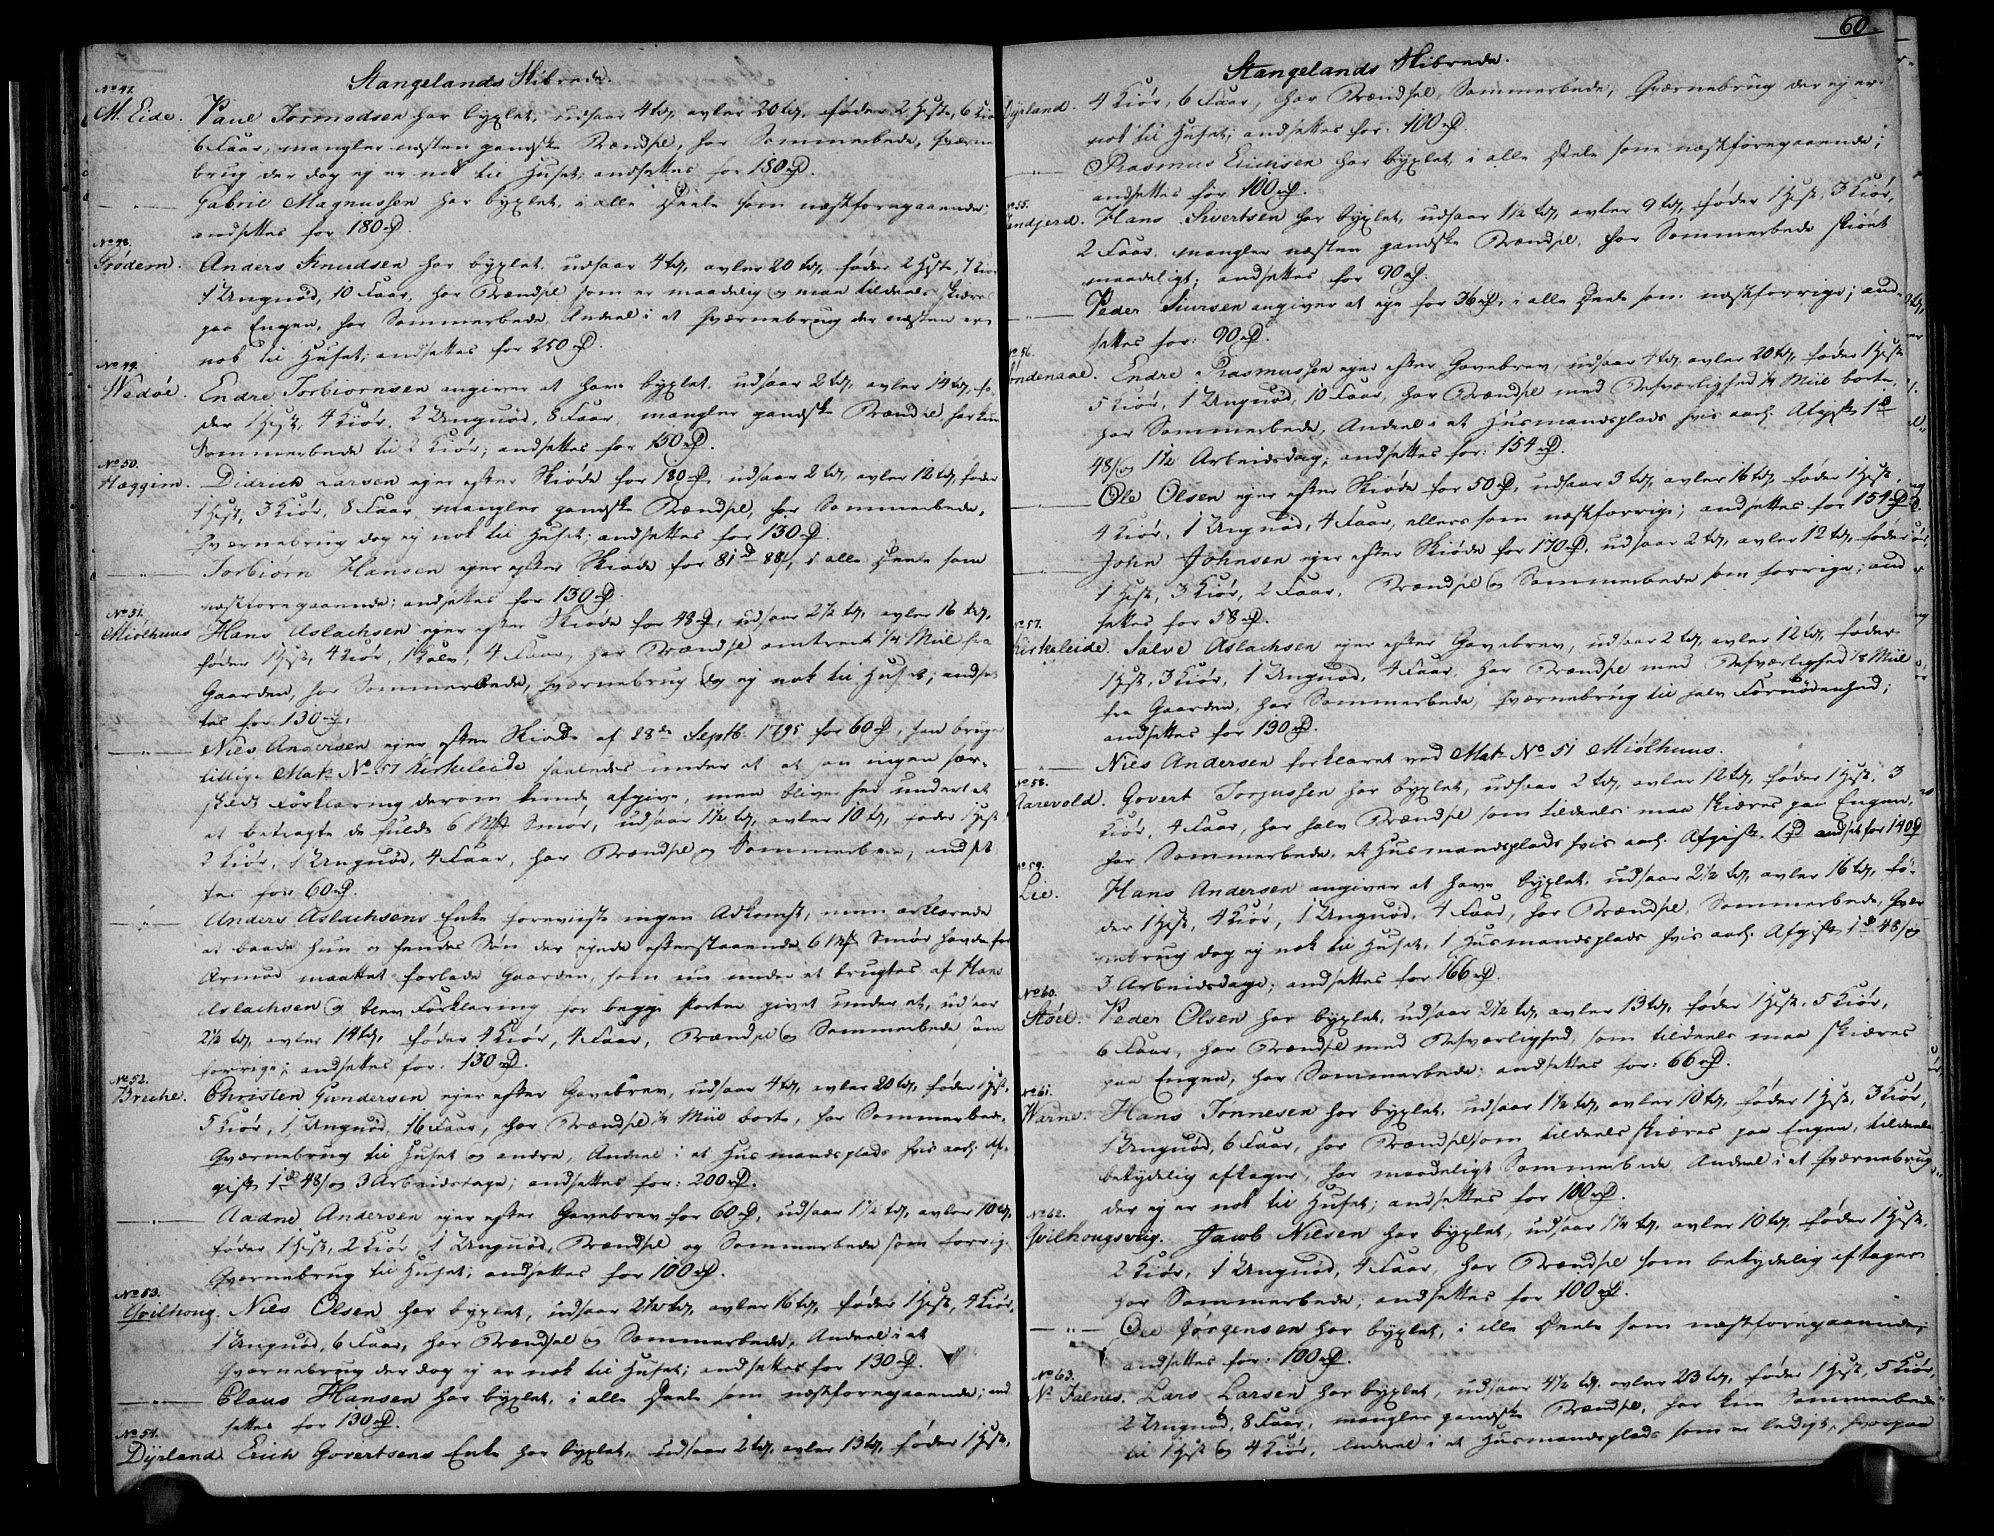 Stangelands Skibrede.
No 47.
M. Eide. Paul Tormodsen har byxlet, udsaar 4 td, avler 20 td, føder 2 Hest, 6 Kiør
6 Faar, mangler næsten gandske Brændsel, har Sommerbede, Qværne
brug der dog ej er nok til Huset; andsettes for 180 rD.
— " — Gabriel Magnussen har byxlet, i alle Deele som næstforegaaende;
andsettes for 180 rD.
No 48.
Grødem. Anders Knudsen har byxlet, udsaar 4 td, avler 20 td, føder 2 Hest, 7 Kiør
1 Ungnød, 10 Faar, har Brændsel som er maadelig og maa tildeels skiæres
paa Engen, har Sommerbede, Andeel i et Qværnebrug der næsten er
nok til Huset; andsettes for 250 rD.
No 49.
Wedøe. Endre Torbiørnsen angiver at have byxlet, udsaar 2 td, avler 14 td, fø-
der 1 Hest, 4 Kiør, 2 Ungnød, 8 Faar, mangler gandske Brændsel har kun
Sommerbede til 2 Kiør; andsettes for 150 rD.
No 50.
Hæggim. Didrich Larsen ejer efter Skiøde for 180 rD, udsaar 2 td, avler 12 td, føder
1 Hest, 3 Kiør, 8 Faar, mangler gandske Brændsel, har Sommerbede,
Qværnebrug dog ej nok til Huset; andsettes for 130 rD.
— " — Torbiørn Hansen ejer efter Skiøde for 81 rd 88 s, i alle Deele som
næstforegaaende; andsettes for 130 rD.
No 51.
Miølhuus Hans Aslachsen ejer efter Skiøde for 48 rD, udsaar 2 1/2 td, avler 16 td,
føder 1 Hest, 4 Kiør, 1 Kalv, 4 Faar, har Brændsel omtrent 1/4 Miil fra
Gaarden, har Sommerbede, Qværnebrug dog ej nok til Huset; andset-
tes for 130 rD.
— " — Niels Andersen ejer efter Skiøde af 28de Septb. 1795 for 60 rD, han bruger
tillige Mat. No 57 Kirkeleide saaledes under et at han ingen sær-
skildt Forklaring derom kunde afgive, men bliver her under et
at betragte de fulde 6 Smør, udsaar 1 1/2 td, avler 10 td, føder 1 Hest
2 Kiør, 1 Ungnød, 4 Faar, har Brændsel og Sommerbede; andset
tes for 60 rD.
— " — Anders Aslachsens Enke foreviiste ingen Adkomst, men erklærede
at baade hun og hendes Søn der ejede efterstaaende 6 Smør havde for
Armod maattet forlade Gaarden, som nu under et brugtes af Hans
Aslachsen og blev Forklaring for begge Parter givet under et, udsaar
2 1/2 td, avler 14 td, føder 4 Kiør, 4 Faar, Brændsel og Sommerbede som
forrige; andsettes for 130 rD.
No 52.
Brekke. Christen Gundersen ejer efter Gavebrev, udsaar 4 td, avler 20 td, føder 1 Hest,
5 Kiør, 1 Ungnød, 16 Faar, har Brændsel 1/4 Miil borte, har Sommerbede,
Qværnebrug til Huset og andre, Andeel i et Husmandsplads hvis aarl. Af-
gift 1 rd 48 s og 3 Arbeidsdage; andsettes for: 200 rD.
— " — Aadne Andersen ejer efter Gavebrev for 60 rD, udsaar 1 1/2 td, avler 10 td,
føder 1 Hest, 2 Kiør, 1 Ungnød, Brændsel og Sommerbede som forrige
Qværnebrug til Huset; andsettes for 100 rD.
No 53.
Qvilhoug. Niels Olsen har byxlet, udsaar 2 1/2 td, avler 16 td, føder 1 Hest, 4 Kiør,
1 Ungnød, 6 Faar, har Brændsel og Sommerbede, Andeel i et
Qværnebrug der dog ej er nok til Huset; andsettes for 130 rD.
— " — Claus Hansen har byxlet, i alle Deele som næstforegaaende; and
settes for 130 rD.
No 54.
Dyrland Erich Govertsens Enke har byxlet, udsaar 2 td, avler 13 td, føder 1 Hest,
60.
Stangelands Skibrede.
Dyrland. 4 Kiør, 6 Faar, har Brændsel, Sommerbede, Qværnebrug der ej er
nok til Huset; andsettes for: 100 rD.
— " — Rasmus Erichsen har byxlet, i alle Deele som næstforegaaende;
andsettes for 100 rD.
No 55.
Hans Sivertsen har byxlet, udsaar 1 1/2 td, avler 9 td, føder 1 Hest, 3 Kiør,
2 Faar, mangler næsten gandske Brændsel, har Sommerbede skiønt
maadeligt; andsettes for 90 rD.
— " — Peder Siursen angiver at eje for 36 rD, i alle Deele som næstforrige; and-
settes for: 90 rD.
No 56.
Endre Rasmussen ejer efter Gavebrev, udsaar 4 td, avler 20 td, føder 1 Hest
5 Kiør, 1 Ungnød, 10 Faar, har Brændsel med Besværlighed 1/4 Miil borte,
har Sommerbede, Andeel i et Husmandsplads hvis aarl. Afgift 1 rd
48 s og 1 1/2 Arbeidsdag; andsettes for: 154 rD.
— " — Ole Olsen ejer efter Skiøde for 50 rD, udsaar 3 td, avler 16 td, føder 1 Hest,
4 Kiør, 1 Ungnød, 4 Faar, ellers som næstforrige; andsettes for 154 rD.
— " — John Johnsen ejer efter Skiøde for 170 rD, udsaar 2 td, avler 12 td, føder
1 Hest, 3 Kiør, 2 Faar, Brændsel og Sommerbede som forrige; and
settes for 58 rD.
No 57.
Kirkeleide. Salve Aslachsen ejer efter Gavebrev, udsaar 2 td, avler 12 td, føder
1 Hest, 3 Kiør, 1 Ungnød, 4 Faar, har Brændsel med Besværlighed 1/8 Miil
fra Gaarden, har Sommerbede, Qværnebrug til halv Fornødenhed;
andsettes for 130 rD.
— " — Niels Andersen forklaret ved Mat. No 51 Miølhuus.
No 58.
Govert Torjussen har byxlet, udsaar 2 td, avler 12 td, føder 1 Hest, 3
Kiør, 4 Faar, har halv Brændsel som tildeels maa skiæres paa Engen,
har Sommerbede, et Husmandsplads hvis aarl. Afgift rD andset for 140 rD
No 59.
Lie. Hans Andersen angiver at have byxlet, udsaar 2 1/2 td, avler 16 td, fø-
der 1 Hest, 4 Kiør, 1 Ungnød, 4 Faar, har Brændsel, Sommerbede, Qvær
nebrug dog ej nok til Huset, 1 Husmandsplads hvis aarl. Afgift 1 rd 48 s og
3 Arbeidsdage; andsettes for 166 rD.
No 60.
Støel. Peder Olsen har byxlet, udsaar 2 1/2 td, avler 13 td, føder 1 Hest, 5 Kiør,
6 Faar, har Brændsel med Besværlighed, som tildeels maa skiæres
paa Engen, har Sommerbede; andsettes for: 66 rD.
No 61.
Warne. Hans Tønnesen har byxlet, udsaar 1 1/2 td, avler 10 td, føder 1 Hest, 3 Kiør,
1 Ungnød, 6 Faar, har Brændsel som tildeels skiæres paa Engen, tildeels
betydelig aftager, har maadeligt Sommerbede, Andeel i et Qværnebrug
der ej er nok til Huset; andsettes for 100 rD.
No 62.
Qvilhougsvig. Jacob Nilsen har byxlet, udsaar 1 1/4 td, avler 10 td, føder 1 Hest,
2 Kiør, 1 Ungnød, 4 Faar, har Brændsel som betydelig aftager
har Sommerbede; andsettes for 100 rD.
— " — Ole Jørgensen har byxlet, i alle Deele som næstforegaaende;
andsettes for: 100 rD.
No 63.
N. Falnes. Lars Larsen har byxlet, udsaar 4 1/2 td, avler 23 td, føder 1 Hest, 5 Kiør,
2 Ungnød, 8 Faar, mangler gandske Brændsel, har kun Sommerbede
til 1 Hest og 4 Kiør, Andeel i et Husmandsplads som er ledigt, hvorpaa